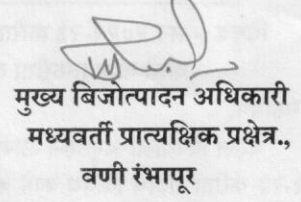 मुख्य बिजोत्पादन अधिकारी
मध्यवर्ती प्रात्यक्षिक प्रक्षेत्र.,
वणी रंभापूर